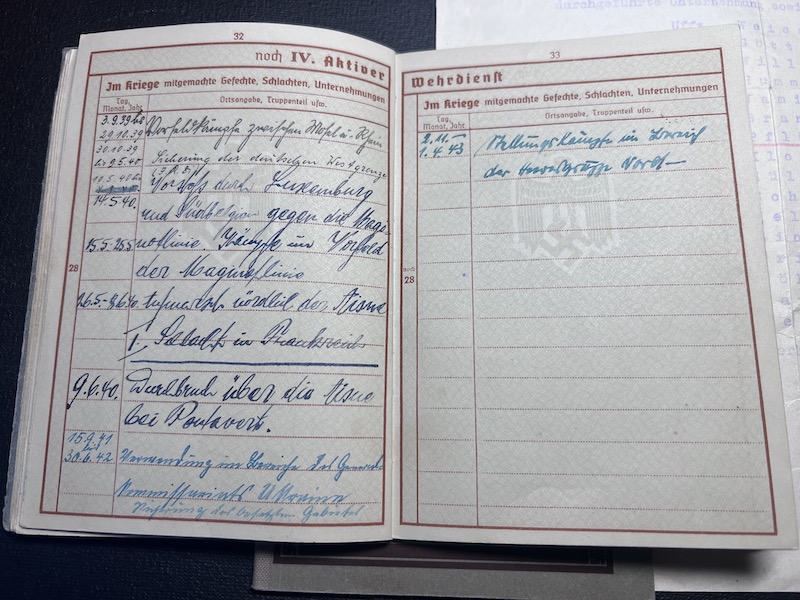 32
noch IV. Aktiver
Im Kriege mitgemachte Gefechte, Schlachten, Unternehmungen
Tag, Monat, Jahr
Ortsangabe, Truppenteil usw.
3.9.39 bis
29.10.39
Vorfeldkämpfe zwischen Mosel u. Rhein
30.10.39
bis 9.5.40
Sicherung der deutschen Westgrenze
10.5.40 bis
14.5.40.
Vorstoß durch Luxemburg
und Südbelgien gegen die Magi
15.5.-25.5
notlinie. Kämpfe im Vorfeld
28
der Maginotlinie
26.5.-8.6.40.
nördlich der Aisne
I. Schlacht in Frankreich
9.6.40.
Durchbruch über die Aisne
bei Pontavert.
15.9.41
bis
30.6.42
Verwendung im Bereiche des General
Kommissariats Ukraine
der besetzten Gebiete
33
Wehrdienst
Im Kriege mitgemachte Gefechte, Schlachten, Unternehmungen
Tag, Monat, Jahr
Ortsangabe, Truppenteil usw.
2.11. –
1.4.43
Stellungskämpfe im Bereich
der Heeresgruppe Nord –
noch
28
durchgeführte Unternehmung
Uffz.